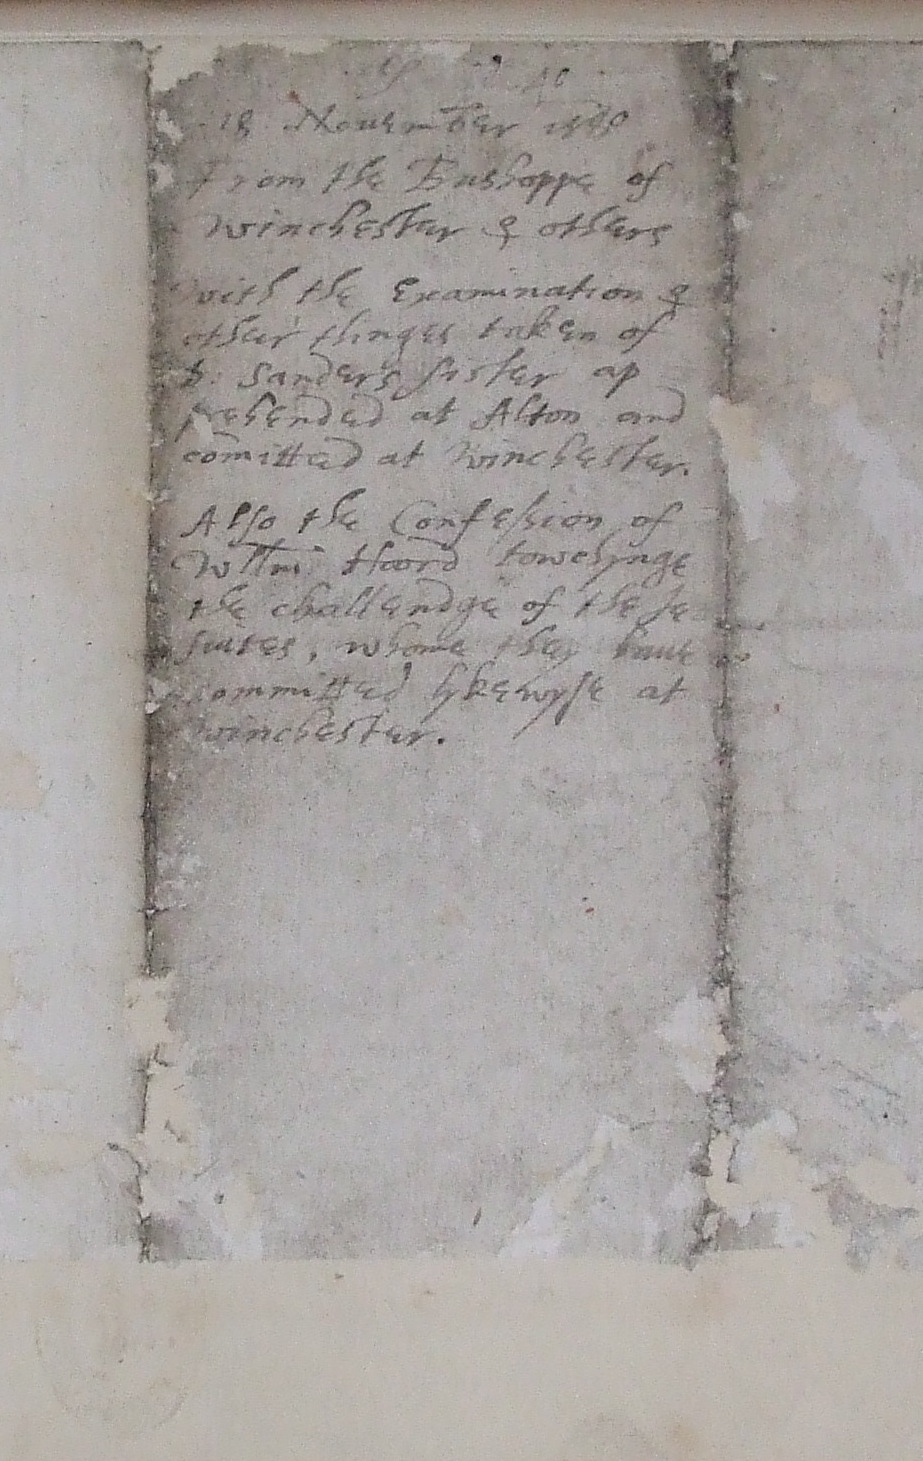 18 November 1580
From the Busshoppe of
Winchester & others
With the Examination &
other thinges taken of
D. Sanders sister ap
prehended at Alton and
comitted at Winchester.
Also the Confession of
Willm Hoord towchynge
the challendge of the Je
suites, whome they haue
committed lykewyse at
Winchester.